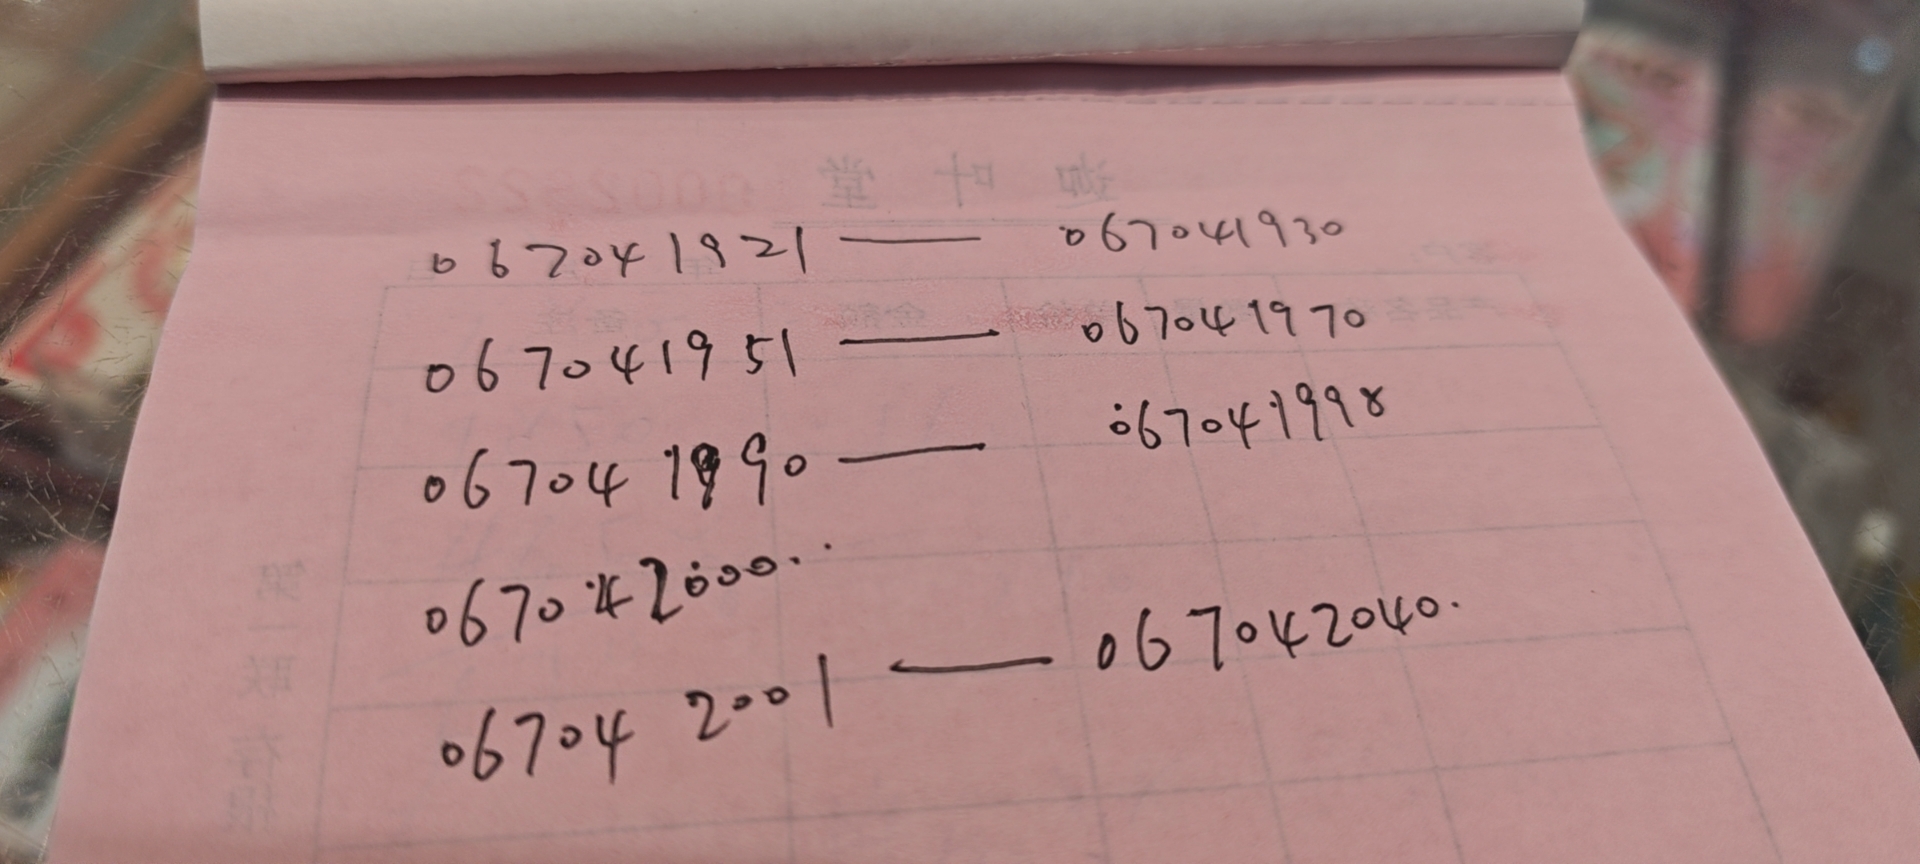 067041921 —— 067041930
067041951 —— 067041970
067041990 —— 067041998
067042000..
067042001 —— 067042040.